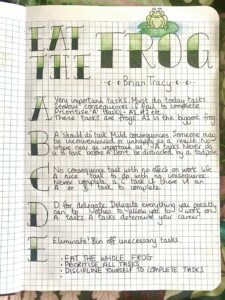 EAT
THE FROG
Brian Tracy
A Very important tasks. Must do today tasks.
Serious consequences if fail to complete
Prioritise 'A' tasks - A1, A2 etc.
These tasks are frogs. A1 is the biggest frog
B A should do task. Mild consequences. Someone may
be inconvenienced or unhappy as a result. No-
where near as important as A tasks. Never do
a B task before A. Don't be distracted by a tadpole
C No consequence task with no effect on work life.
A nice task to do with no consequence.
Never complete a C task if there is an
A or B task to complete.
D D for delegate. Delegate everything you possibly
can to others to allow you to work on
A tasks. A tasks determine your career.
E Eliminate. Bin off unecessary tasks.
- EAT THE WHOLE FROG
- PRIORITISE ALL TASKS
- DISCIPLINE YOURSELF TO COMPLETE TASKS